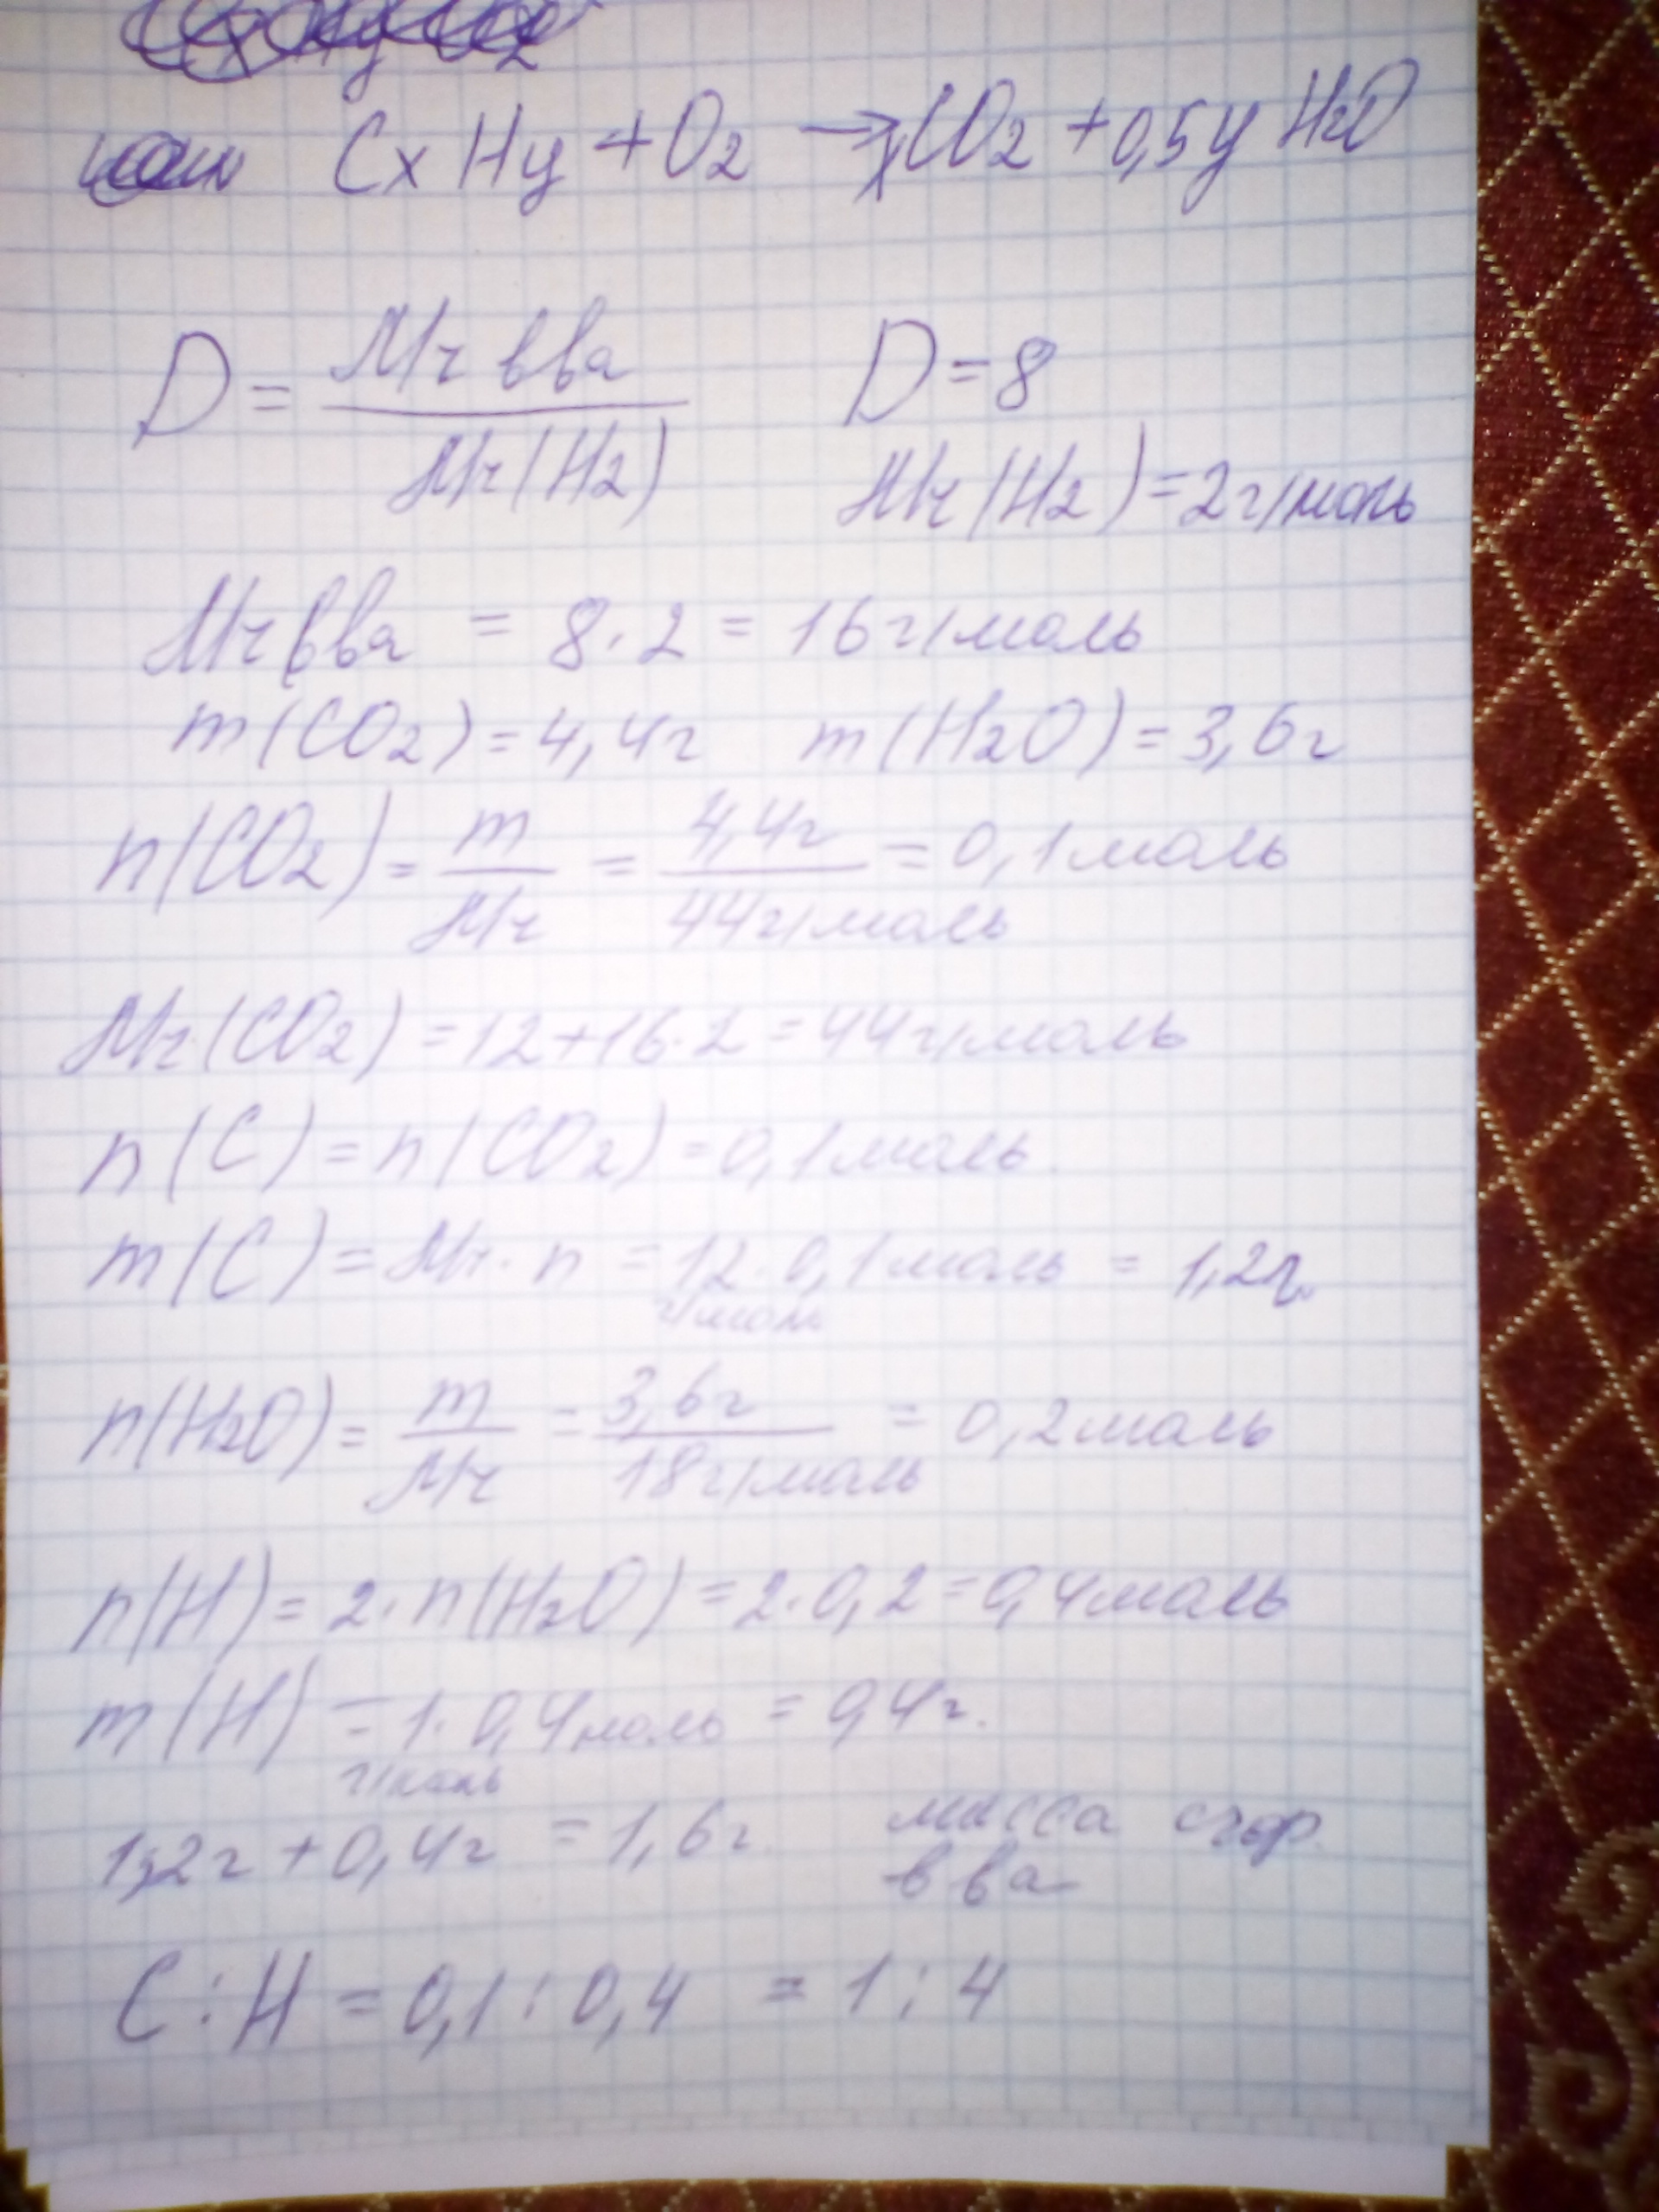 CxHy + O2 → xCO2 + 0,5y H2O
D = Mr вва / Mr(H2) D = 8
Mr(H2) = 2г/моль
Mr вва = 8·2 = 16г/моль
m(CO2) = 4,4г m(H2O) = 3,6г
n(CO2) = m / Mr = 4,4г / 44г/моль = 0,1моль
Mr(CO2) = 12+16·2 = 44г/моль
n(C) = n(CO2) = 0,1моль
m(C) = Mr·n = 12г/моль·0,1моль = 1,2г.
n(H2O) = m / Mr = 3,6г / 18г/моль = 0,2моль
n(H) = 2·n(H2O) = 2·0,2 = 0,4моль
m(H) = 1г/моль·0,4моль = 0,4г.
1,2г + 0,4г = 1,6г. масса сгор.
в ва
C:H = 0,1:0,4 = 1:4